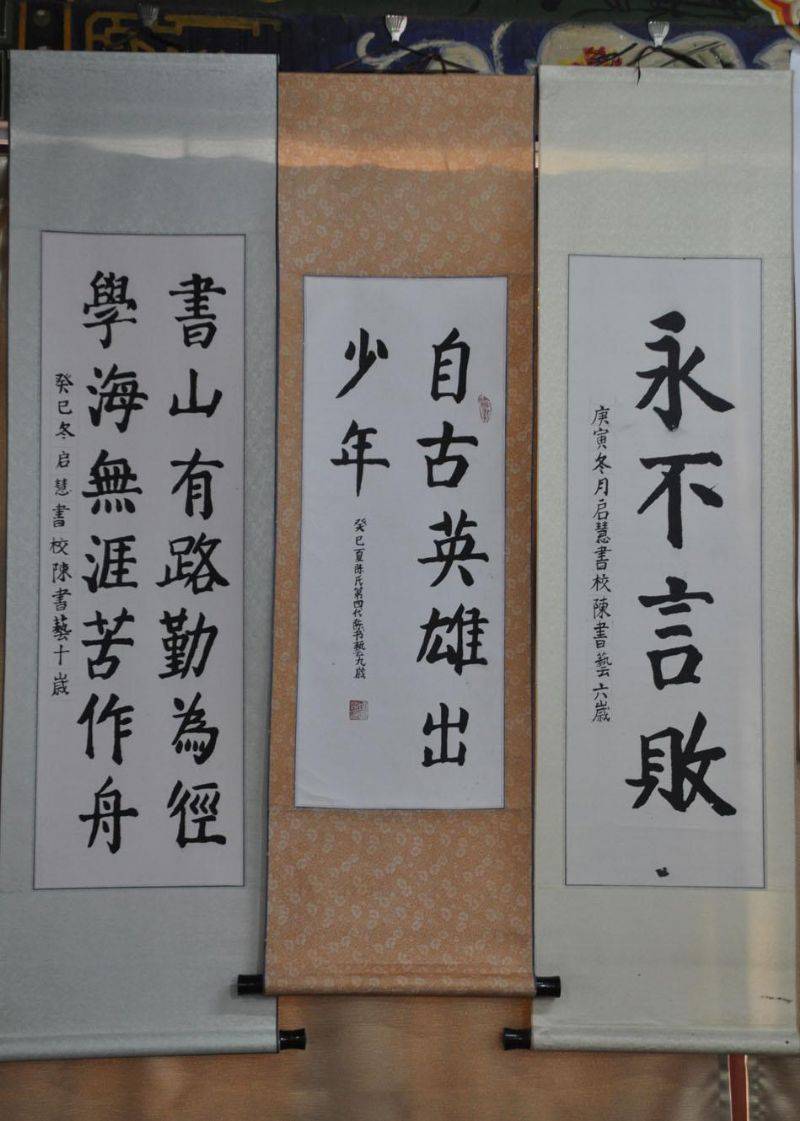 永不言敗
庚寅冬月启慧書校陳書藝六歲
自古英雄出
少年
癸巳夏陈氏第四代陈书艺九歲
書山有路勤為徑
學海無涯苦作舟
癸巳冬启慧書校陳書藝十歲